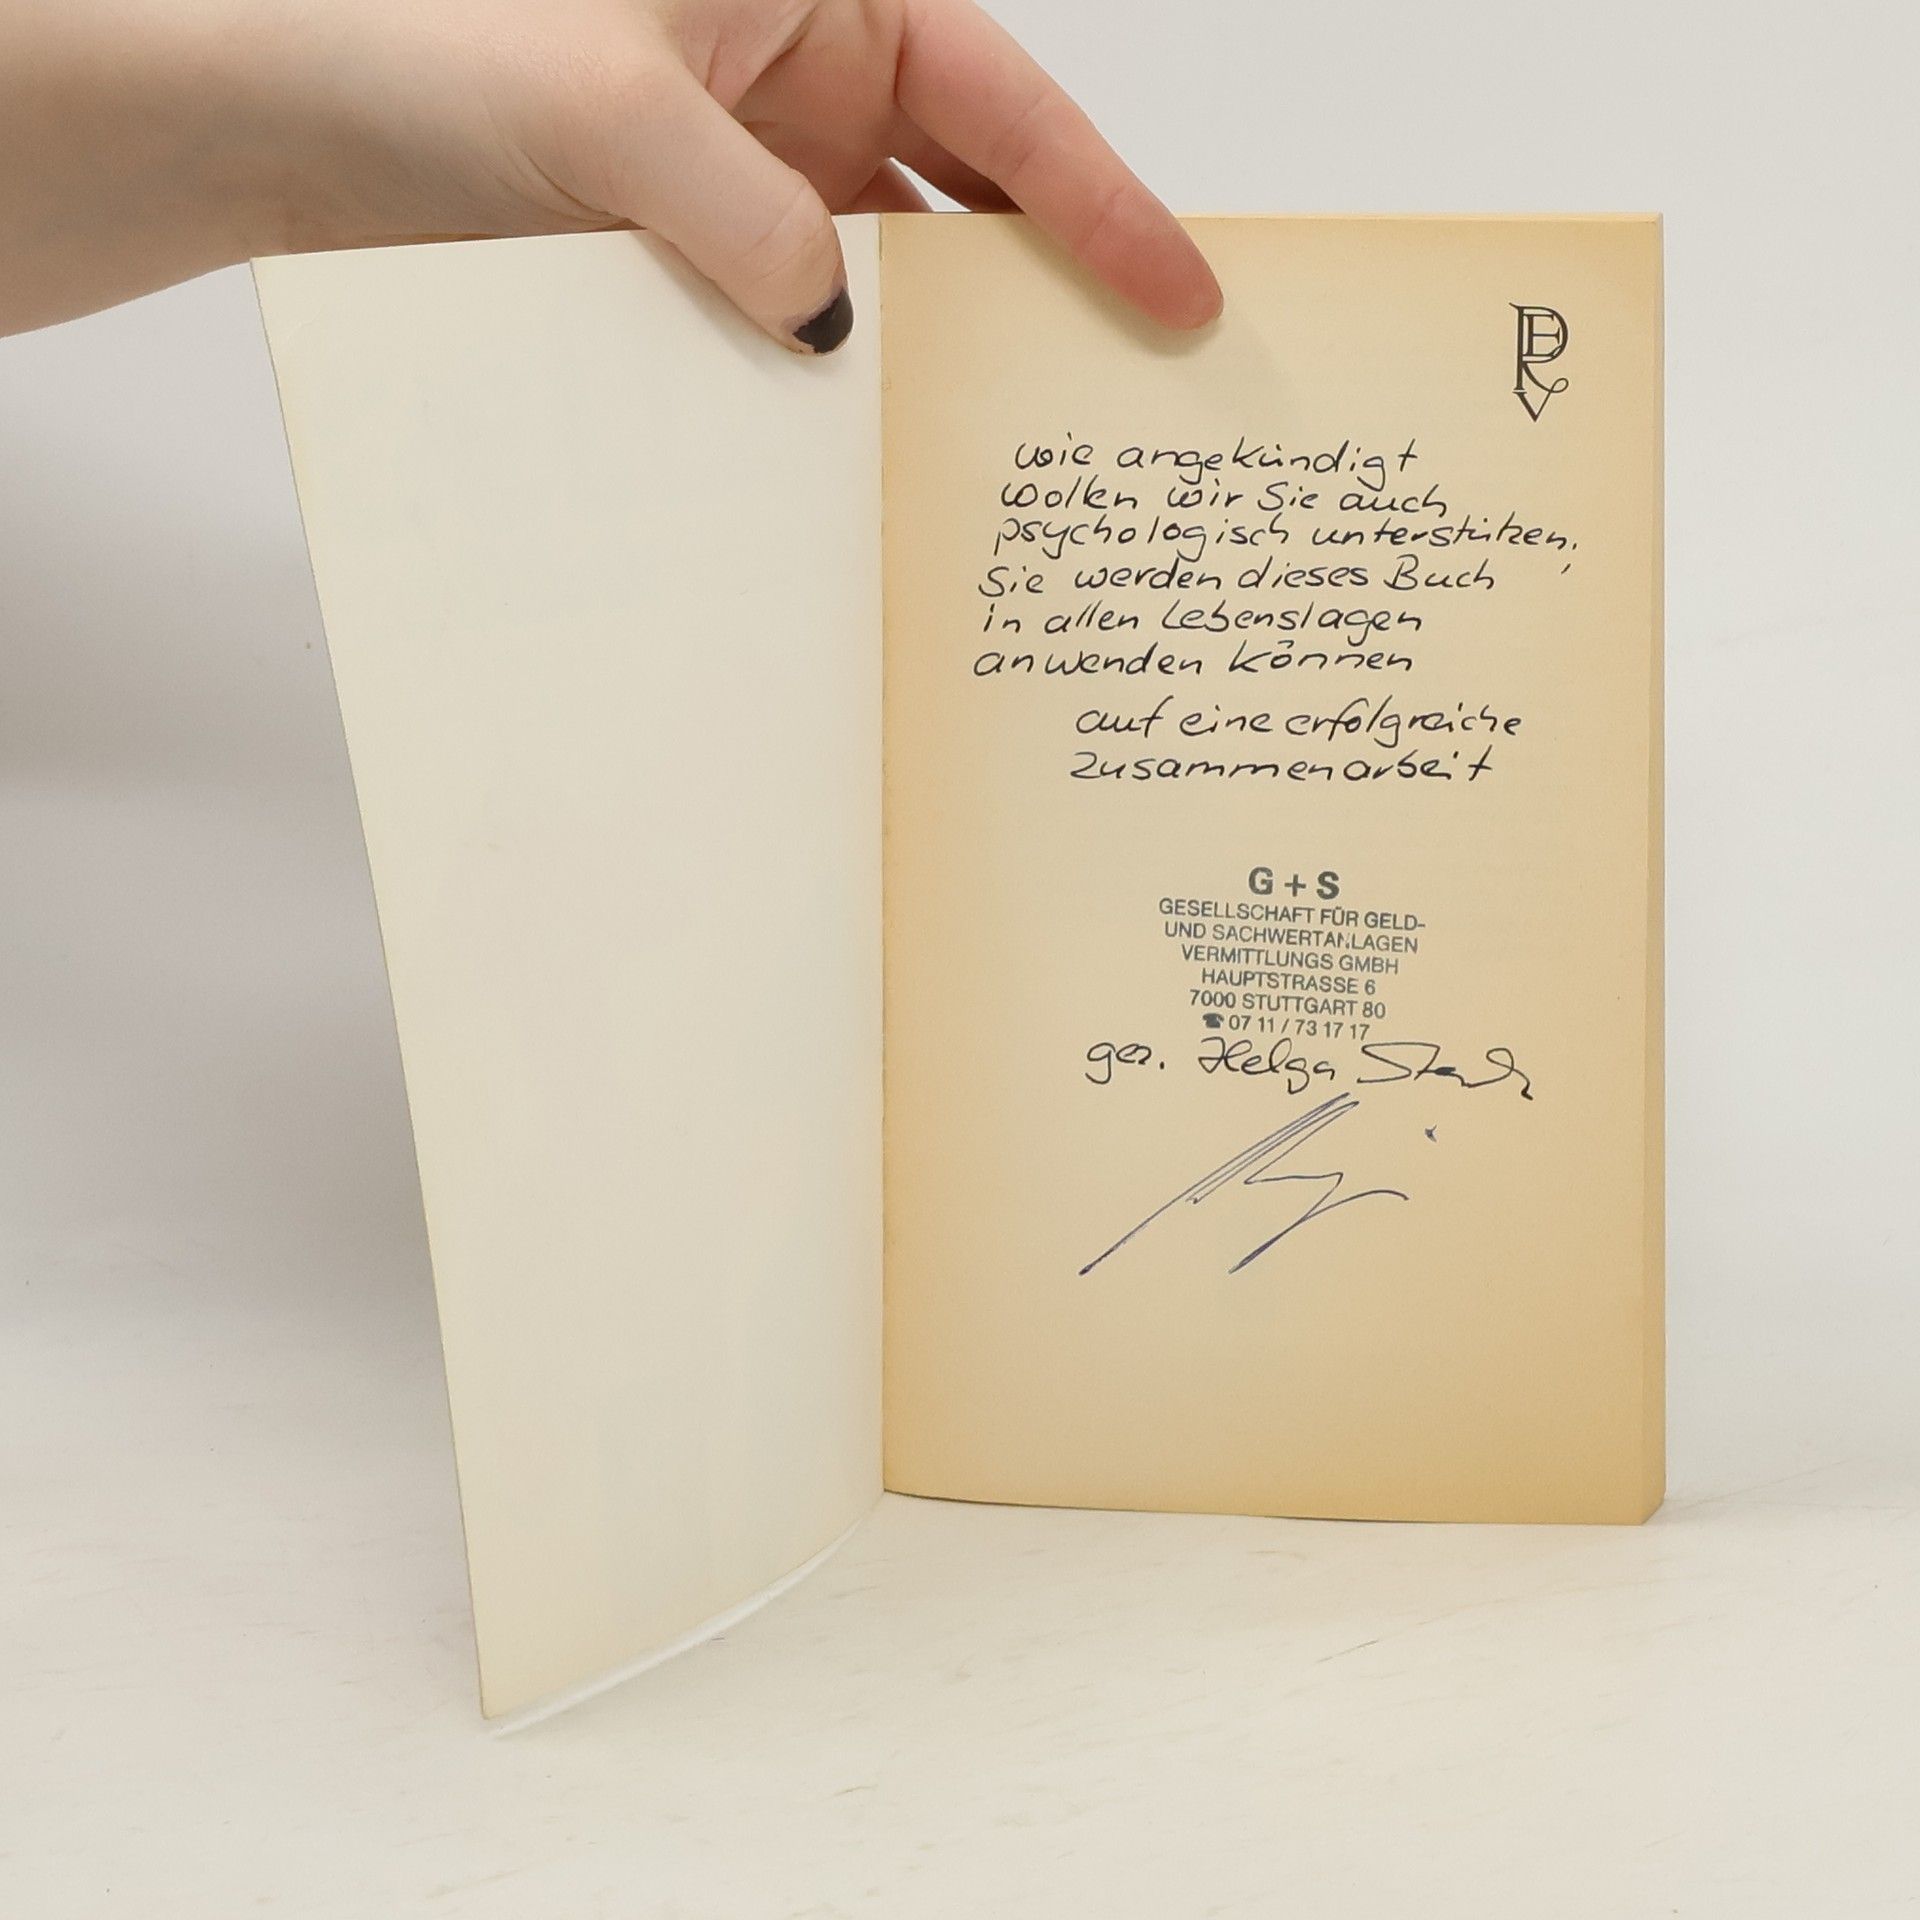 PERV
wie angekündigt
wollen wir Sie auch
psychologisch unterstützen,
Sie werden dieses Buch
in allen Lebenslagen
anwenden können
auf eine erfolgreiche
Zusammenarbeit
G + S
GESELLSCHAFT FÜR GELD-
UND SACHWERTANLAGEN
VERMITTLUNGS GMBH
HAUPTSTRASSE 6
7000 STUTTGART 80
☎ 07 11 / 73 17 17
gez. Helga